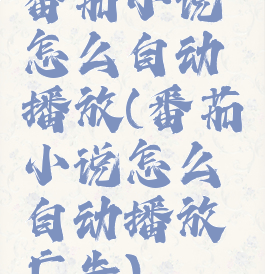 番茄小说
怎么自动
播放(番茄
小说怎么
自动播放
广告)